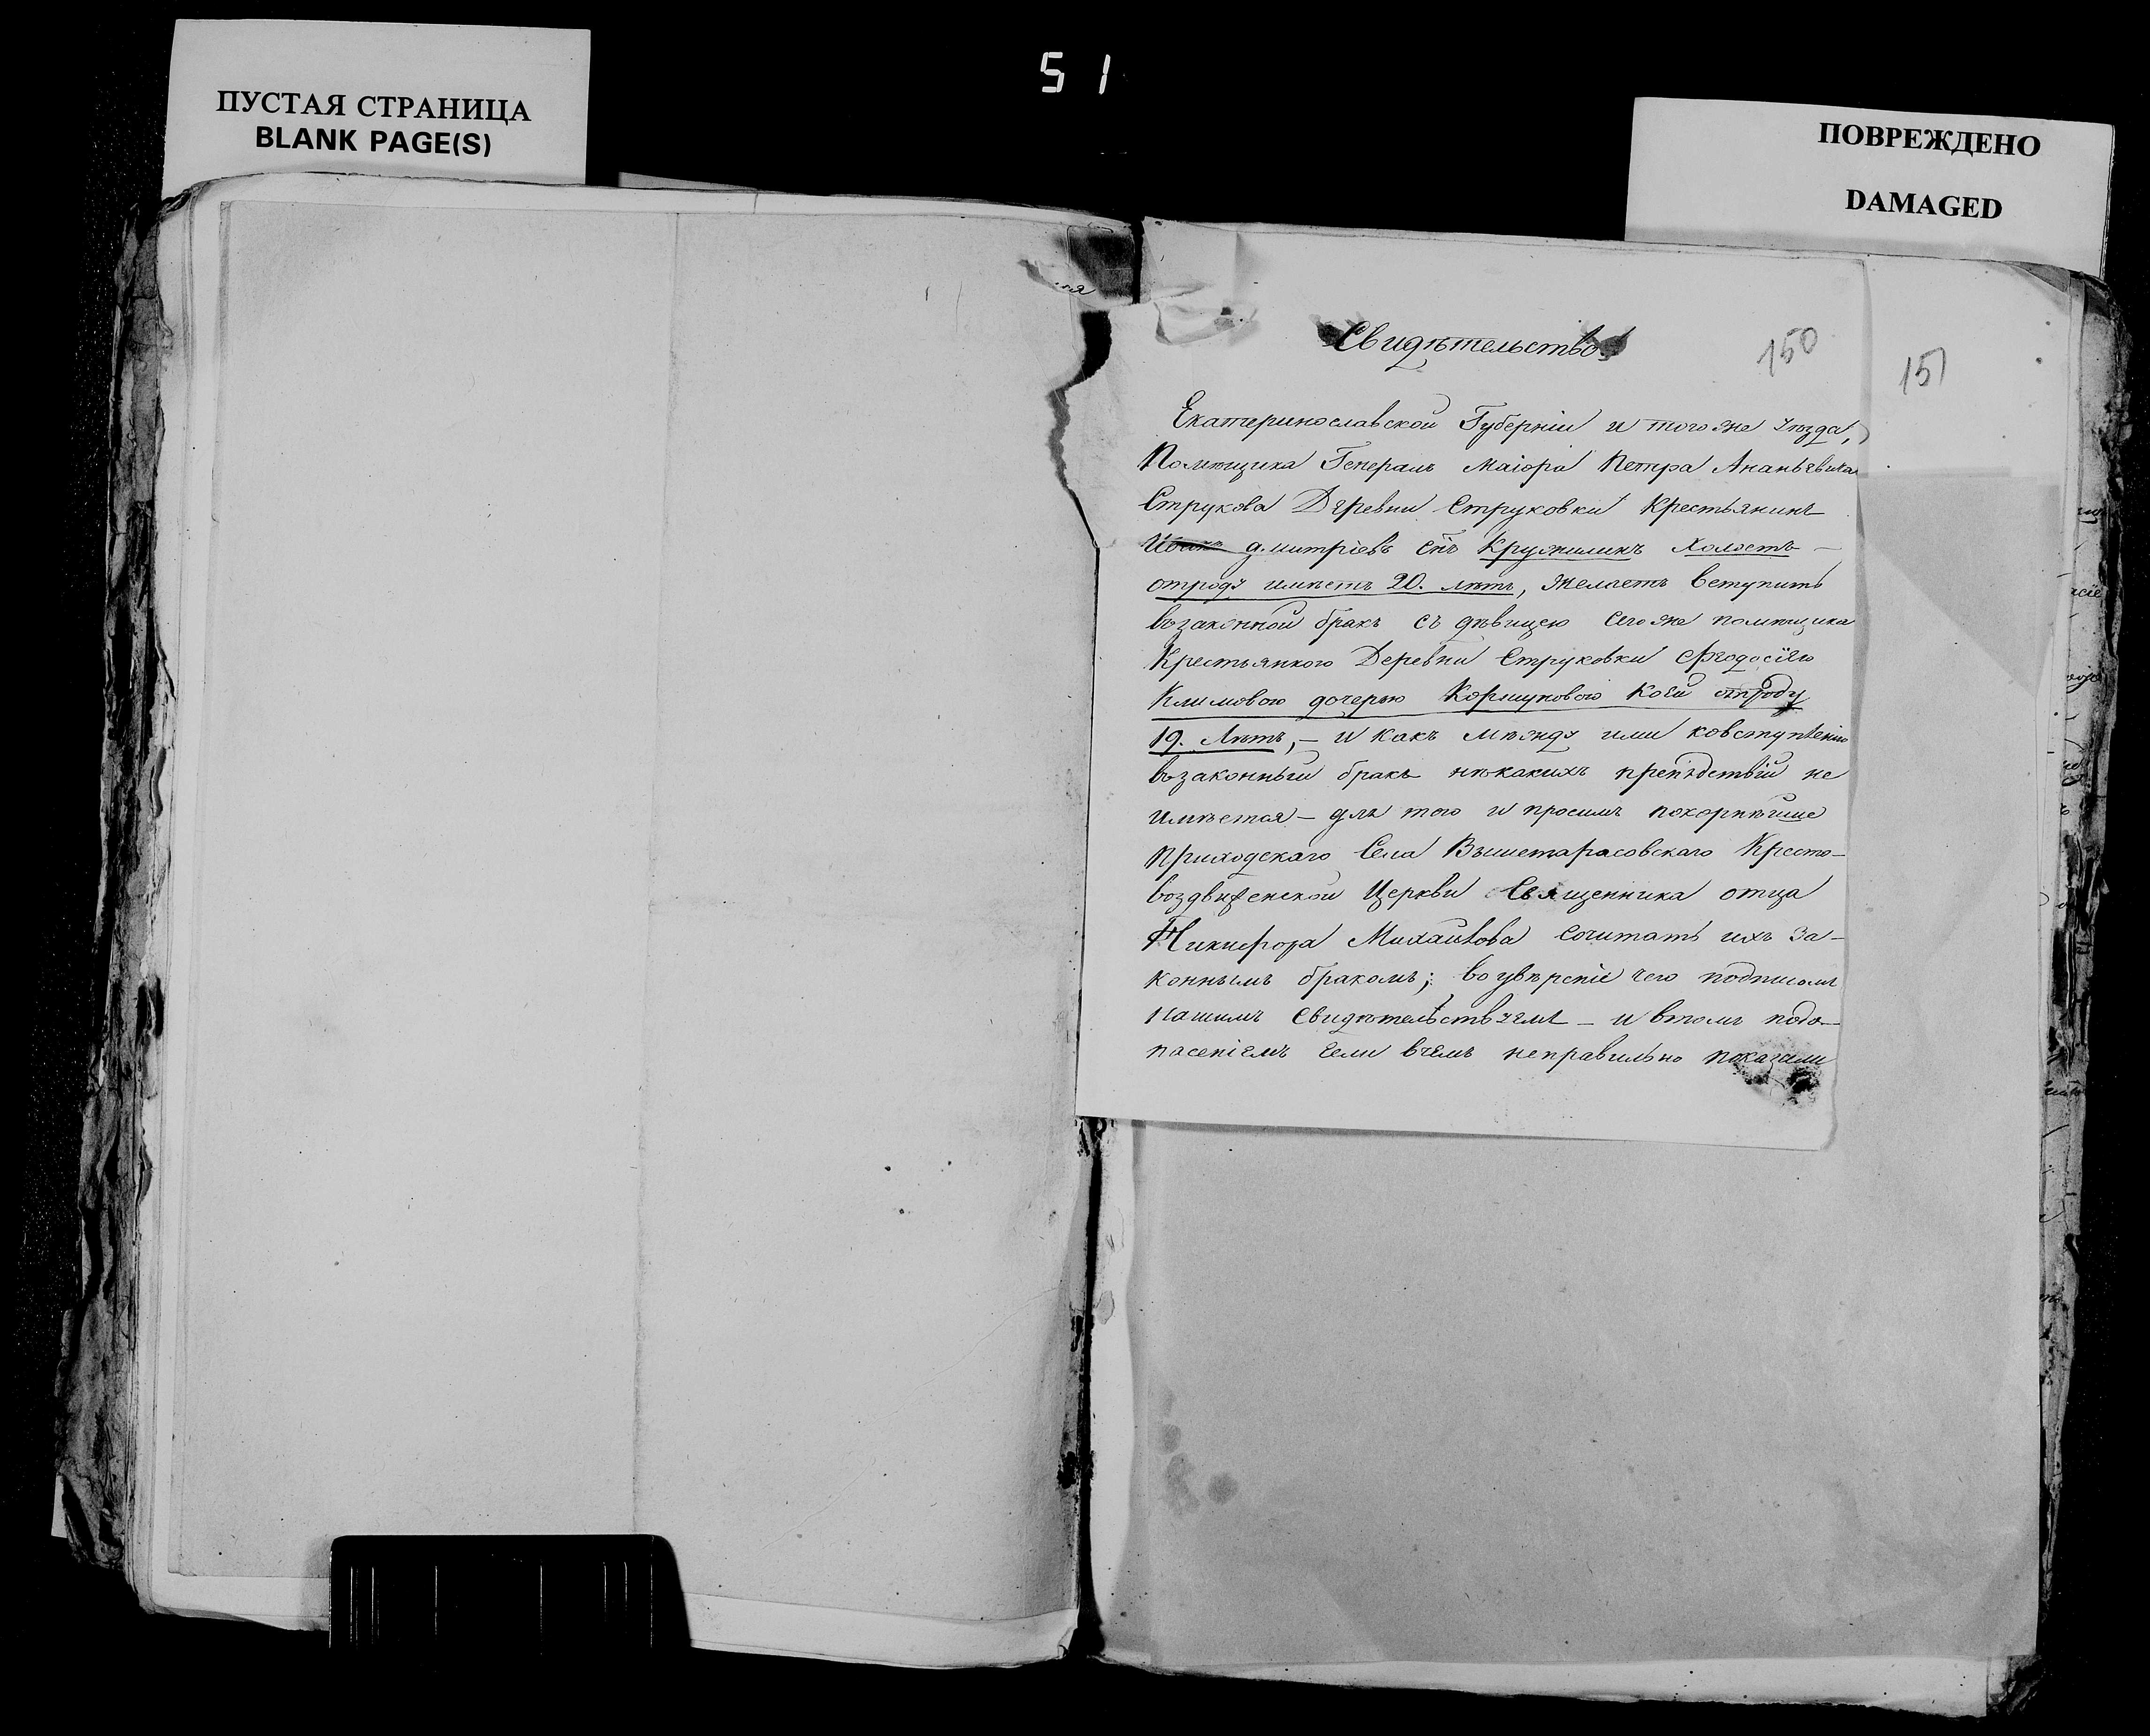 51
ПУСТАЯ СТРАНИЦА
BLANK PAGE(S)
ПОВРЕЖДЕНО
DAMAGED
150
151
Свидѣтельство
Екатеринославской Губерніи и тогоже Уѣзда,
Помѣщика Генералъ Маіора Петра Ананьевича
Струкова Деревни Струковки Крестьянинъ
Дмитріевъ Снъ Кружилинъ Холостъ —
отроду имѣетъ 20. лѣтъ, желаетъ вступить
взаконной бракъ съ дѣвицею сегоже помѣщика
Крестьянкою Деревни Струковки Феодосіею
Климовою дочерью Коршуновою коей отроду
19. Лѣтъ, — и какъ между ими ковступленію
взаконный бракъ нѣкакихъ препядствій не
имѣется — для того и просимъ покорнѣише
приходскаго Села Вышетарасовскаго Кресто-
воздвиженской Церкви Священника отца
Никифора Михайлова сочитать ихъ За-
коннымъ бракомъ; воувѣреніе чего подписомъ
Нашимъ Свидѣтельствуемъ — и втомъ подо-
пасеніемъ если вчемъ неправильно показали